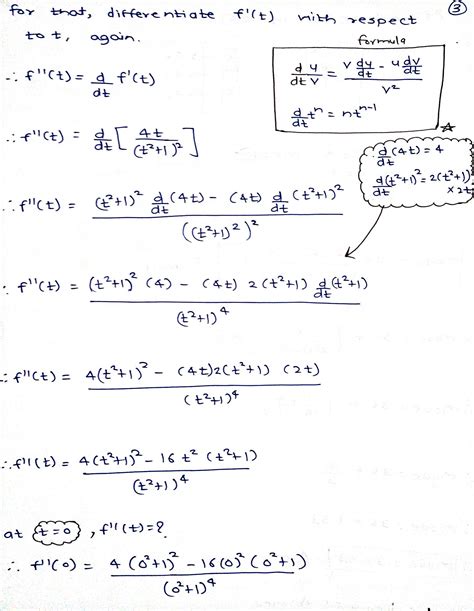 for that, differentiate f'(t) with respect
③
to t, again.
formula
∴ f''(t) = d/dt f'(t)
d/dt u/v = (v du/dt - u dv/dt)/v²
d/dt tⁿ = n tⁿ⁻¹
∴ f''(t) = d/dt [4t/(t²+1)²]
d/dt (4t) = 4
d/dt (t²+1)² = 2(t²+1) × 2t
∴ f''(t) = ((t²+1)² d/dt (4t) - (4t) d/dt (t²+1)²)/((t²+1)²)²
∴ f''(t) = ((t²+1)² (4) - (4t) 2(t²+1) d/dt (t²+1))/(t²+1)⁴
∴ f''(t) = (4(t²+1)² - (4t)2(t²+1) (2t))/(t²+1)⁴
∴ f''(t) = (4(t²+1)² - 16 t² (t²+1))/(t²+1)⁴
at t=0, f''(t)=?
∴ f''(0) = (4(0²+1)² - 16(0)² (0²+1))/(0²+1)⁴